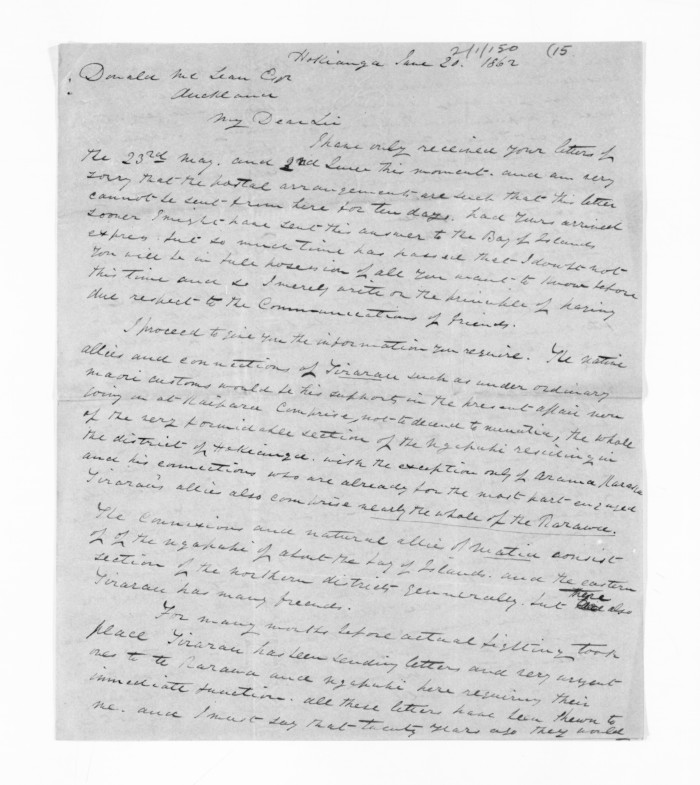 2/1/150 (15
Hokianga June 20. 1862
Donald Mc Lean Esqr
Auckland
My Dear Sir
I have only received your letters of
the 23rd May. and 2nd June this moment. and am very
sorry that the postal arrangement are such that this letter
cannot be sent from here for ten days. had yours arrived
sooner I might have sent this answer to the Bay of Islands
express. but so much time has passed that I doubt not
you will be in full posession of all you want to know before
this time and so I merely write on the principle of paying
due respect to the Communications of friends.
I proceed to give you the information you require. The native
allies and connections of Tirarau such as under ordinary
maori customs would be his support in the present affair now
going on at Kaipara Comprise, not to decend to minutia, the whole
of the very formidable section of the Ngapuhi residing in
the district of Hokianga. with the exception only of Arama Karaka
and his connections who are already for the most part engaged
Tirarau's allies also comprise nearly the whole of the Rarawa.
The Connexions and natural allies of Matiu consist
of of the Ngapuhi of about the bay of Islands. and the eastern
section of the northern districts generally. but there also
Tirarau has many friends.
For many months before actual fighting took
place Tirarau has been sending letters and very urgent
ones to the Rarawa and Ngapuhi here requiring their
immediate junction. all these letters have been shewn to
me. and I must say that twenty years ago they would